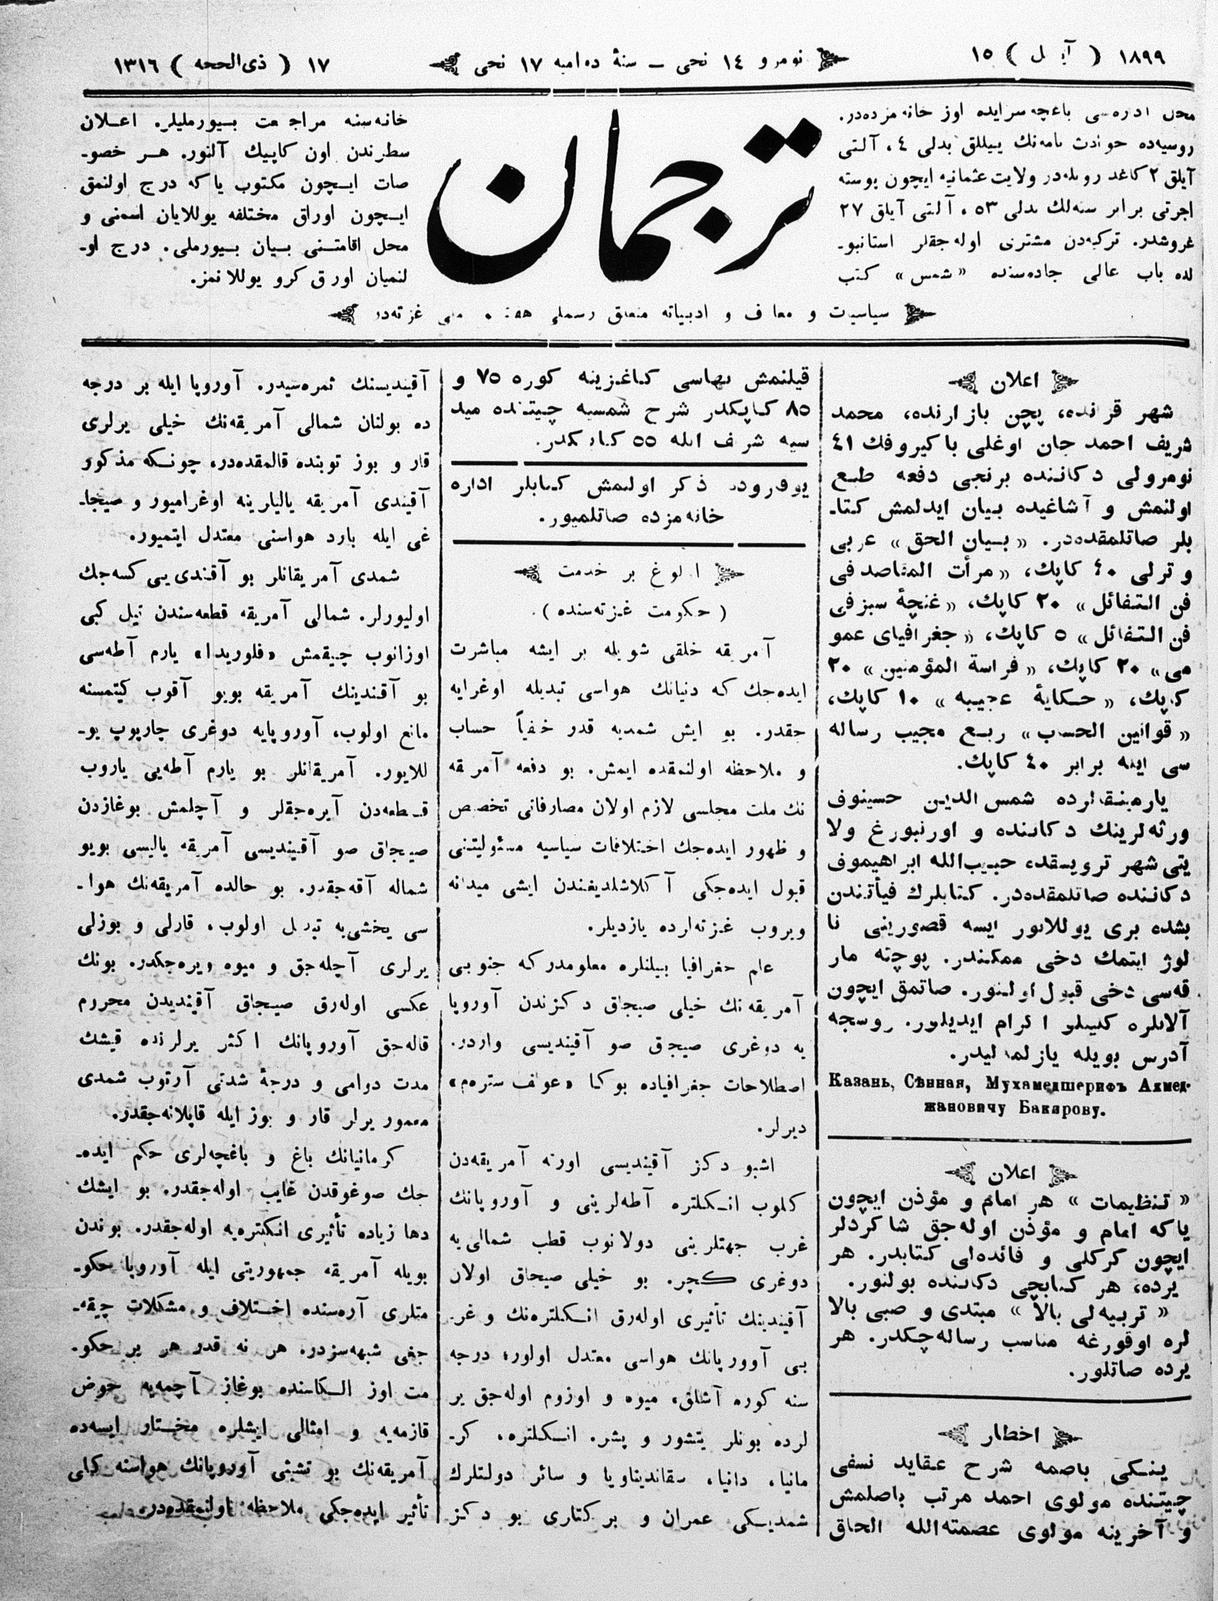 ١٨٩٩ ( آپريل ) ١٥
نومرو ١٤ نجى – سنۀ دوامیه ١٧ نجى
١٧ ( ذى الحجه ) ١٣١٦
محل اداره‌سى باغچه‌سرايده اوز خانه‌مزده‌در.
روسيه‌ده حوادث نامه‌نك ييللق بدلى ٤، آلتى
آيلق ٢ كاغد روبله‌در ولايت عثمانيه ايچون بوسته
اجرتى برابر سنه‌لك بدلى ٥٣، آلتى آيلق ٢٧
غروشدر. تركيه‌دن مشترى اوله‌جقلر استانبو-
لده باب عالى جاده‌سنده «شمس» كتب
ترجمان
خانه‌سنه مراجعت بيورمليلر. اعلان
سطرندن اون كاپيك آلنور. هر خصو-
صات ايچون مكتوب ياكه درج اولنمق
ايچون اوراق مختلفه يوللايان اسمنى و
محل اقامتنى بيان بيورملى. درج او-
لنميان اورق كرو يوللانمز.
سياسيت و معارف و ادبياته متعلق رسملى هفته‌لك ملى غزته‌در
اعلان
شهر قزانده، پچن بازارنده، محمد
شريف احمد جان اوغلى باكيروفك ٤١
نومرولى دكاننده برنجى دفعه طبع
اولنمش و آشاغيده بيان ايدلمش كتا-
بلر صاتلمقده‌در. «بيان الحق» عربى
و تركى ٤٠ كاپك، «مرأت المقاصد فى
فن التفائل» ٢٠ كاپك، «غنچۀ سبز فى
فن التفائل» ٥ كاپك، «جغرافياى عمو
مى» ٢٠ كاپك، «فراسة المؤمنين» ٢٠
كاپك، «حكايۀ عجيبه» ١٠ كاپك،
«قوانين الحسب» ربع مجيب رساله
سى ايله برابر ٤٠ كاپك.
يارمينقه‌لرده شمس‌الدين حسينوف
ورثه‌لرينك دكاننده و اورنبورغ ولا
يتى شهر ترويسقده، حبيب‌الله ابراهيموف
دكاننده صاتلمقده‌در. كتابلرك فيأتندن
بشده برى يوللانور ايسه قصورينى نا
لوژ ايتمك دخى ممكندر. پوچته مار
قه‌سى دخى قبول اولنور. صاتمق ايچون
آلانلره كليلو اكرام ايديلور. روسجه
آدرس بويله يازلمه‌ليدر.
Казань, Сѣнная, Мухамедшерифъ Ахмед-
жановичу Бакирову.
اعلان
«تنظيمات» هر امام و مؤذن ايچون
ياكه امام و مؤذن اوله‌جق شاكردلر
ايچون كركلى و فائده‌لى كتابدر. هر
يرده، هر كتابچى دكاننده بولنور.
«تربيه‌لى بالا» مبتدى و صبى بالا
لره اوقورغه مناسب رساله‌چكدر. هر
يرده صاتلور.
اخطار
ينكى باصمه شرح عقايد نسفى
چيتنده مولوى احمد مرتب باصلمش
و آخرينه مولوى عصمته‌الله الحاق
قيلنمش بهاسى كاغزينه كوره ٧٥ و
٨٥ كاپكدر شرح شمسيه چيتنده ميد
سيه شريف ايله ٥٥ كاپكدر.
يوقروده ذكر اولنمش كتابلر اداره
خانه‌مزده صاتلميور.
الوغ بر خدمت
(حكومت غزته‌سنده).
آمريقه خلقى شويله بر ايشه مباشرت
ايده‌جك كه دنيانك هواسى تبديله اوغرايه
جقدر. بو ايش شمديه قدر خفياً حساب
و ملاحظه اولنمقده ايمش. بو دفعه آمريقه
نك ملت مجلسى لازم اولان مصارفانى تخصص
و ظهور ايده‌جك اختلافات سياسيه مسئوليتنى
قبول ايده‌جكى آكلاشلديغندن ايشى ميدانه
ويروب غزته‌لرده يازديلر.
عام جغرافيا بيلنلره معلومدركه جنوبى
آمريقه‌نك خيلى صيجاق دكزندن آوروپا
يه دوغرى صيجق صو آقينديسى واردر.
اصطلاحات جغرافياده بوكا «غولف ستره‌م»
ديرلر.
اشبو دكز آقينديسى اورته آمريقه‌دن
كلوب انكلتره آطه‌لرينى و آوروپانك
غرب جهتلرينى دولانوب قطب شمالى‌يه
دوغرى كچر. بو خيلى صيجاق اولان
آقيندينك تأثيرى اوله‌رق انكلتره‌نك و غر-
بى آوروپانك هواسى معتدل اولور، درجه
سنه كوره آشلق، ميوه و اوزوم اوله‌جق ير
لرده بونلر يتشور و پشر. انكلتره، كر-
مانيا، دانيا، سقانديناويا و سائر دولتلرك
شمديكى عمران و بركتارى بو دكز
آقيندیسنك ثمره‌سيدر. آوروپا ايله بر درجه
ده بولنان شمالى آمريقه‌نك خيلى يرلرى
قار و بوز توبنده قالمقده‌در، چونكه مذكور
آقيندى آمريقه ياليارينه اوغراميور و صيجا-
غى ايله بارد هواسنى معتدل ايتميور.
شمدى آمريقانلر بو آقندى‌يى كسه‌جك
اوليورلر. شمالى آمريقه قطعه‌سندن تيل كبى
اوزانوب چيقمش «فلوريدا» يارم آطه‌سى
بو آقندينك آمريقه بويو آقوب كيتمسنه
مانع اولوب، آوروپايه دوغرى چارپوپ يو-
للايور. آمريقانلر بو يارم آطه‌يى ياروب
قطعه‌دن آيره‌جقلر و آچلمش بوغازدن
صيجاق صو آقينديسى آمريقه ياليسى بويو
شماله آقه‌جقدر. بو حالده آمريقه‌نك هوا-
سى يخشى‌يه تبديل اولوب، قارلى و بوزلى
يرلرى آچله‌جق و ميوه ويره‌جكدر. بونك
عكسى اوله‌رق صيجاق آقينديدن محروم
قاله‌جق آوروپانك اكثر يرلرنده قيشك
مدت دوامى و درجۀ شدتى آرتوب شمدى
معمور يرلر قار و بوز ايله قاپلانه‌جقدر.
كرمانيانك باغ و باغچه‌لرى حكم ايده-
جك صوغوقدن غايب اوله‌جقدر. بو ايشك
دها زياده تأثيرى انكلتره‌يه اوله‌جقدر. بوندن
بويله آمريقه جمهوريتى ايله آوروپا حكو-
متلرى آره‌سنده اختلاف و مشكلات چيقه-
جغى شبهه‌سزدر. هر نه قدر هر بر حكو-
مت اوز الكاسنده بوغاز آچمه‌يه حوض
قازمه‌يه و امثالى ايشلره مختار ايسه‌ده
آمريقه‌نك بو تشبثى آوروپانك هواسنه كلى
تأثير ايده‌جكى ملاحظه اولنمقده‌در.